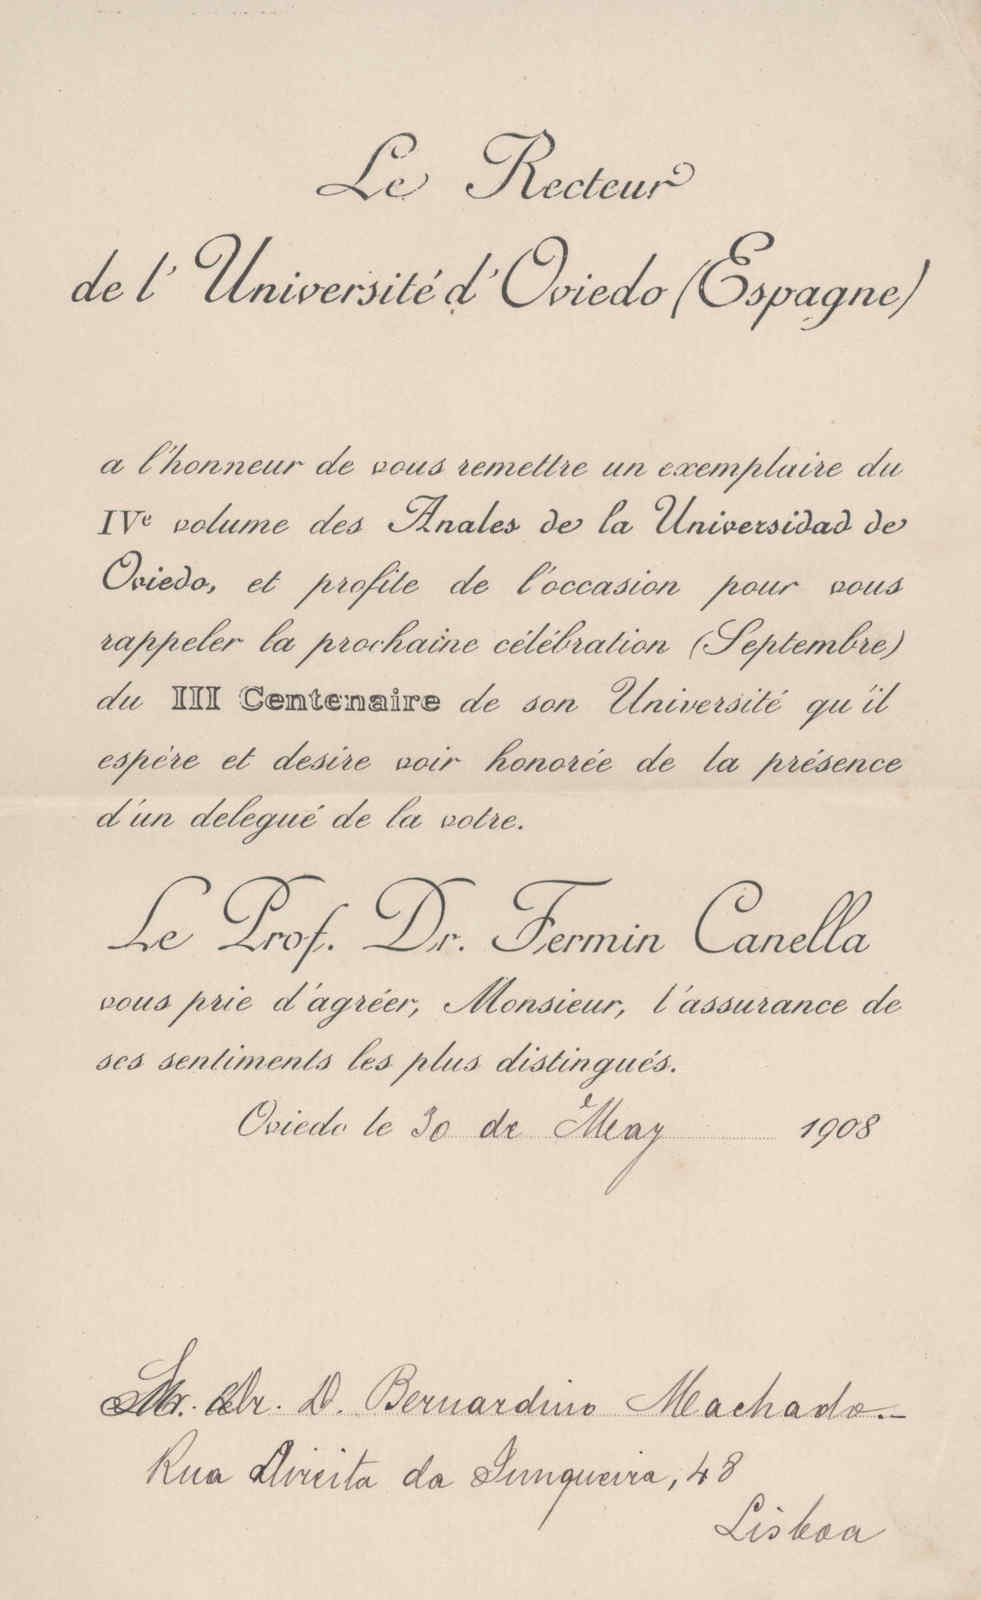 Le Recteur
de l'Université d'Oviedo (Espagne)
a l'honneur de vous remettre un exemplaire du
IVe volume des Anales de la Universidad de
Oviedo, et profite de l'occasion pour vous
rappeler la prochaine célébration (Septembre)
du III Centenaire de son Université qu'il
espère et desire voir honorée de la présence
d'un delegué de la votre.
Le Prof. Dr. Fermin Canella
vous prie d'agréer, Monsieur, l'assurance de
ses sentiments les plus distingués.
Oviedo le 30 de May 1908
Dr. D. Bernardino Machado.—
Rua Direita da Junqueira, 48
Lisboa